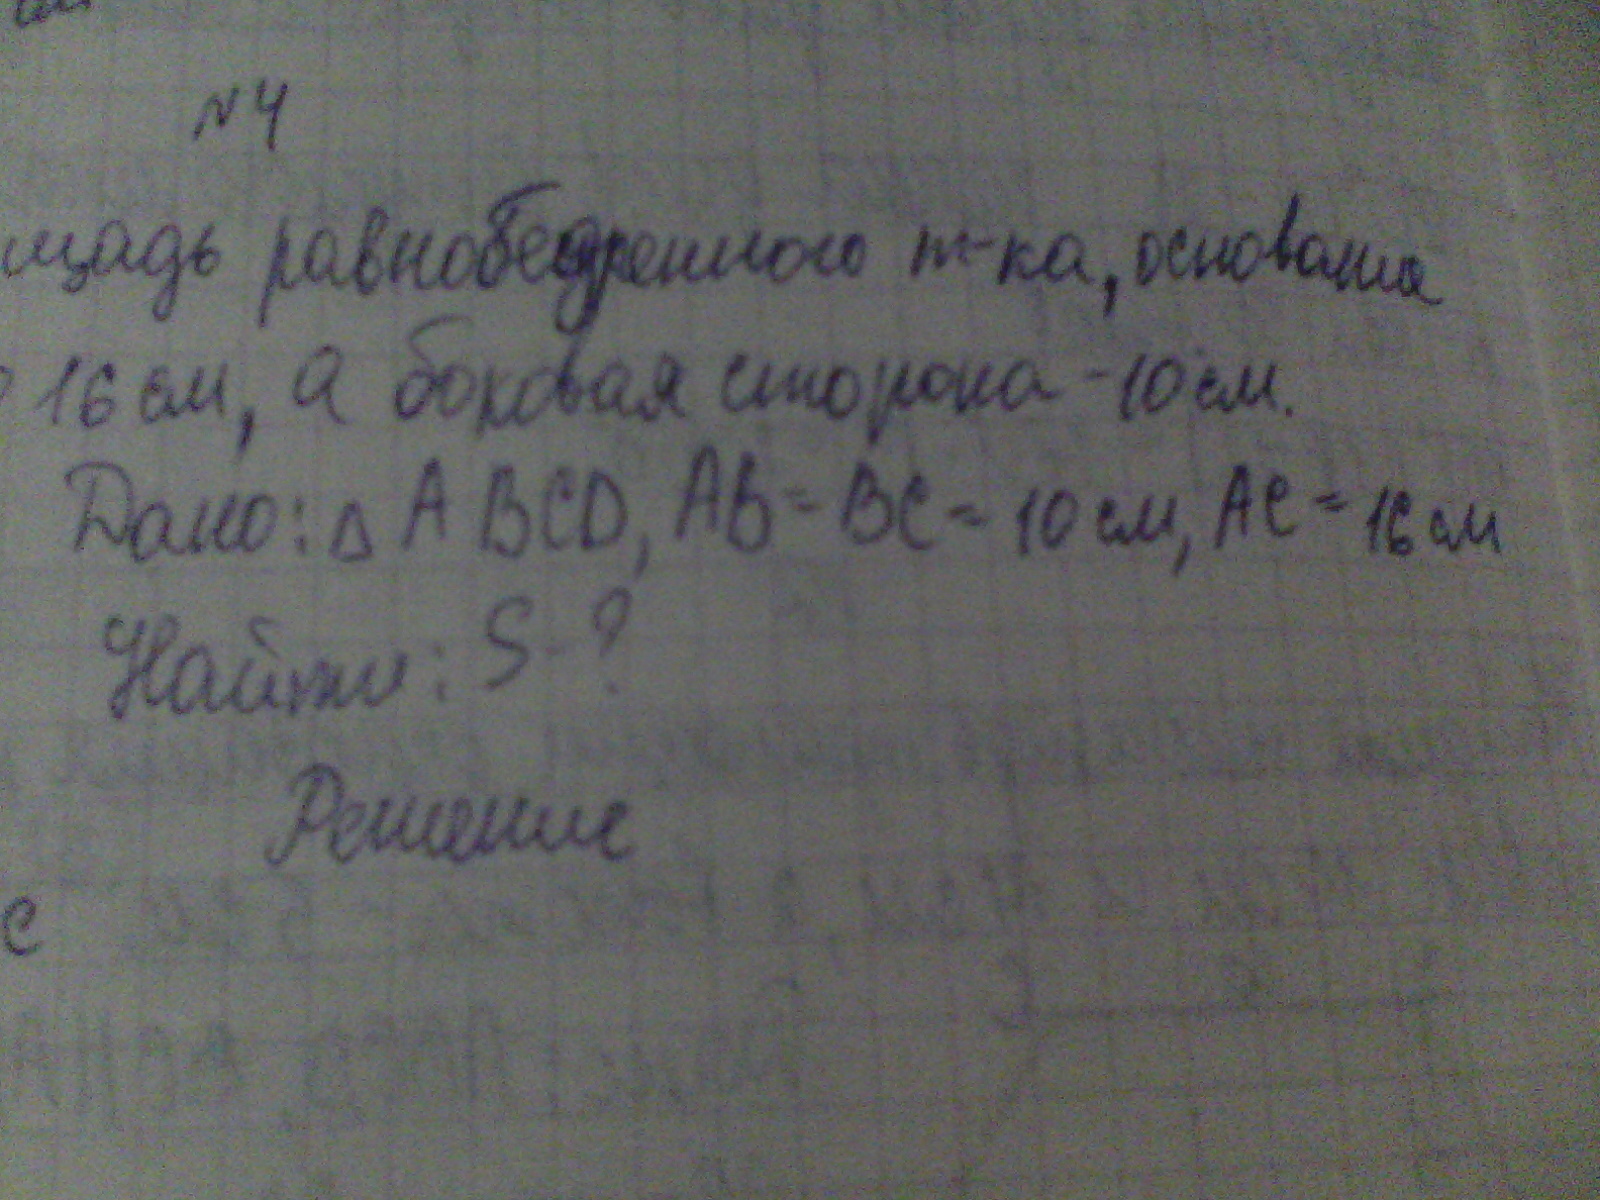 №4
щадь равнобедренного т-ка, основание
16 см, а боковая сторона - 10 см.
Дано: Δ ABCD, AB = BC = 10 см, AC = 16 см
Найти: S - ?
Решение
C